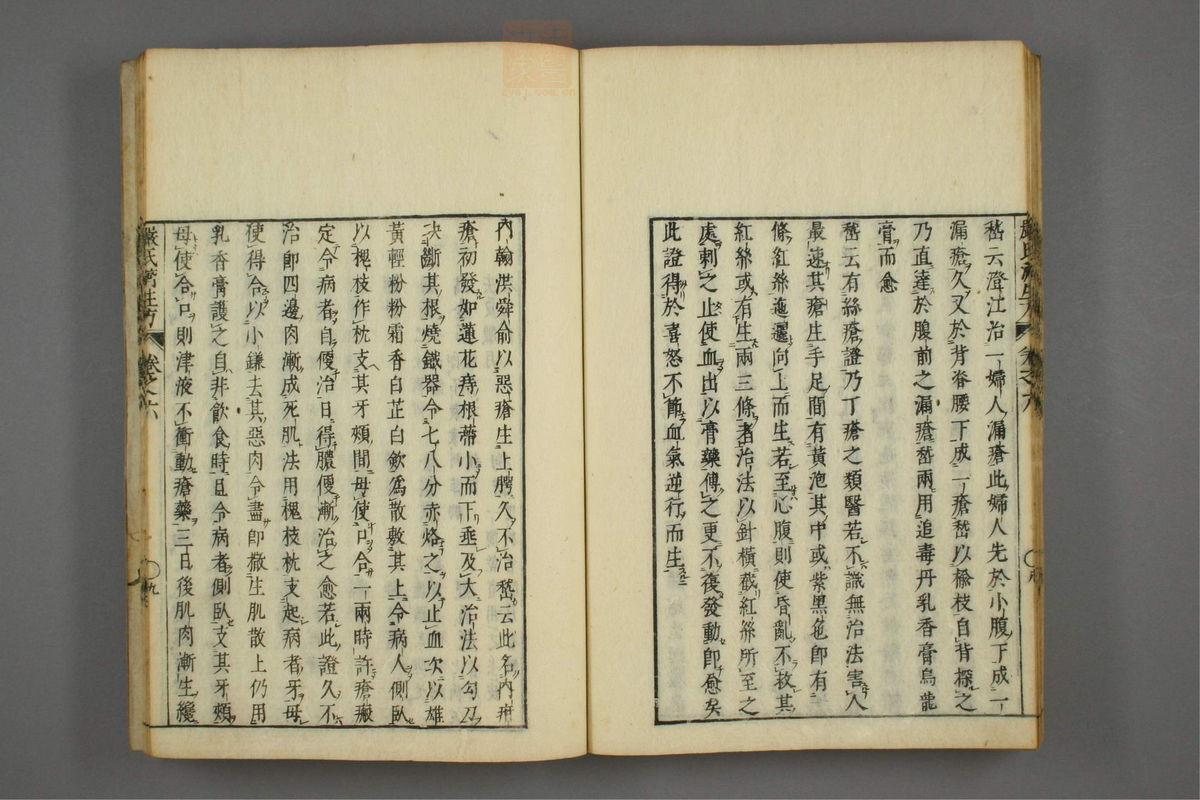 嵆云澄江治一婦人漏瘡此婦人先於小腹下成一
漏瘡久又於背脊腰下成一瘡嵆以楡枝自背探之
乃直達於腹前之漏瘡嵆兩用追毒丹乳香膏烏龍
膏而愈
嵆云有絲瘡證乃丁瘡之類醫若不識無治法害人
最速其瘡生手足間有黃泡其中或紫黑色卽有一
條紅絲迤邐向上而生若至心腹則使昏亂不救其
紅絲或有生兩三條者治法以針橫截紅絲所至之
處刺之止使血出以膏藥傅之更不復發動卽愈矣
此證得於喜怒不節血氣逆行而生
嚴氏濟生方 卷之六
內翰洪舜俞以惡瘡生上腭久不治嵆云此名內疳
瘡初發如蓮花痔根蔕小而下垂及大治法以勾刀
决斷其根燒鐵器令七八分赤烙之以止血次以雄
黃輕粉粉霜香白芷白斂爲散敷其上令病人側臥
以槐枝作枕支其牙頰間毋使口合一兩時許瘡瘢
定令病者自便治日得膿便漸治之愈若此證久不
治卽四邊肉漸成死肌法用槐枝枕支起病者牙毋
使得合以小鎌去其惡肉令盡卽摻生肌散上仍用
乳香膏護之自非飮食時且令病者側臥支其牙頰
毋使合口則津液不衝動瘡藥三日後肌肉漸生纔
嚴氏濟生方 卷之六 九